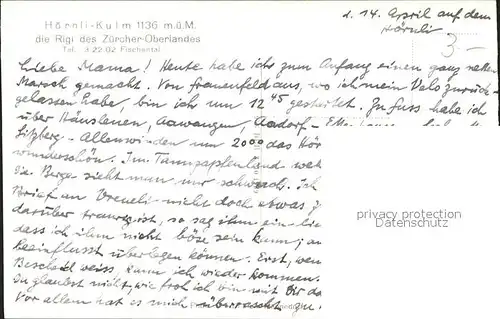 Hörnli-Kulm 1136 m.ü.M.
die Rigi des Zürcher-Oberlandes
Tel. 3 22 02 Fischental
d. 14. April auf dem
Hörnli
3.-
Liebe Mama! Heute habe ich zum Anfang einen ganz netten
Marsch gemacht. Von Frauenfeld aus, wo ich mein Velo zurück-
gelassen habe, bin ich um 12 45 gestartet. Zu Fuss habe ich
über Häuslenen, Aawangen, Aadorf -
Sitzberg - Allenwinden um 2000 das Hör
wunderschön. Im Tannzapfenland
die Berge sieht man nur schwach. Ich
Brief an Vreneli nicht doch etwas
darüber traurig ist, so sag ihm
dass ich ihm nicht böse sein kann, an
beeinflusst überlegen können. Erst, wen
Bescheid weiss, kann ich wieder kommen.
Du glaubst nicht, wie froh ich bin mit Dir da
Vor allem hat es mich überrascht zu
privacy protection
Datenschutz